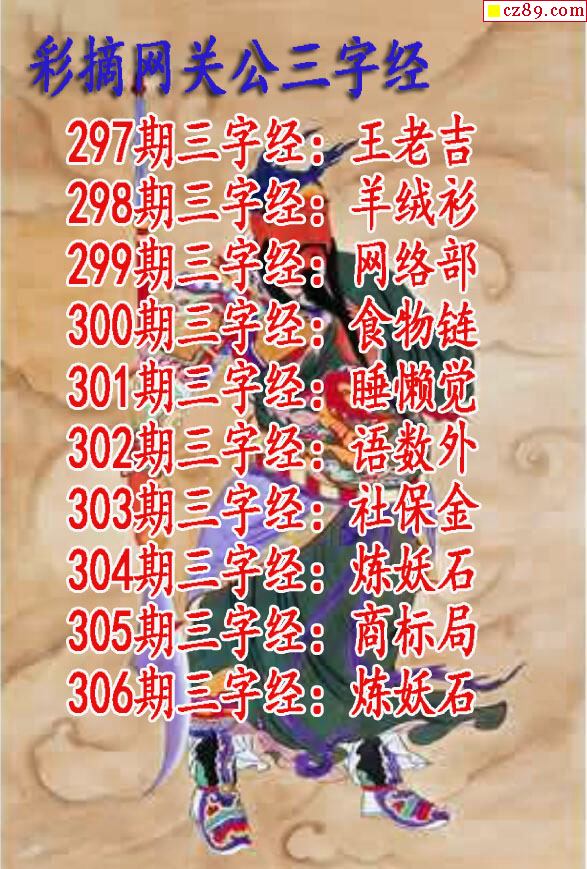 cz89.com
彩摘网关公三字经
297期三字经：王老吉
298期三字经：羊绒衫
299期三字经：网络部
300期三字经：食物链
301期三字经：睡懒觉
302期三字经：语数外
303期三字经：社保金
304期三字经：炼妖石
305期三字经：商标局
306期三字经：炼妖石